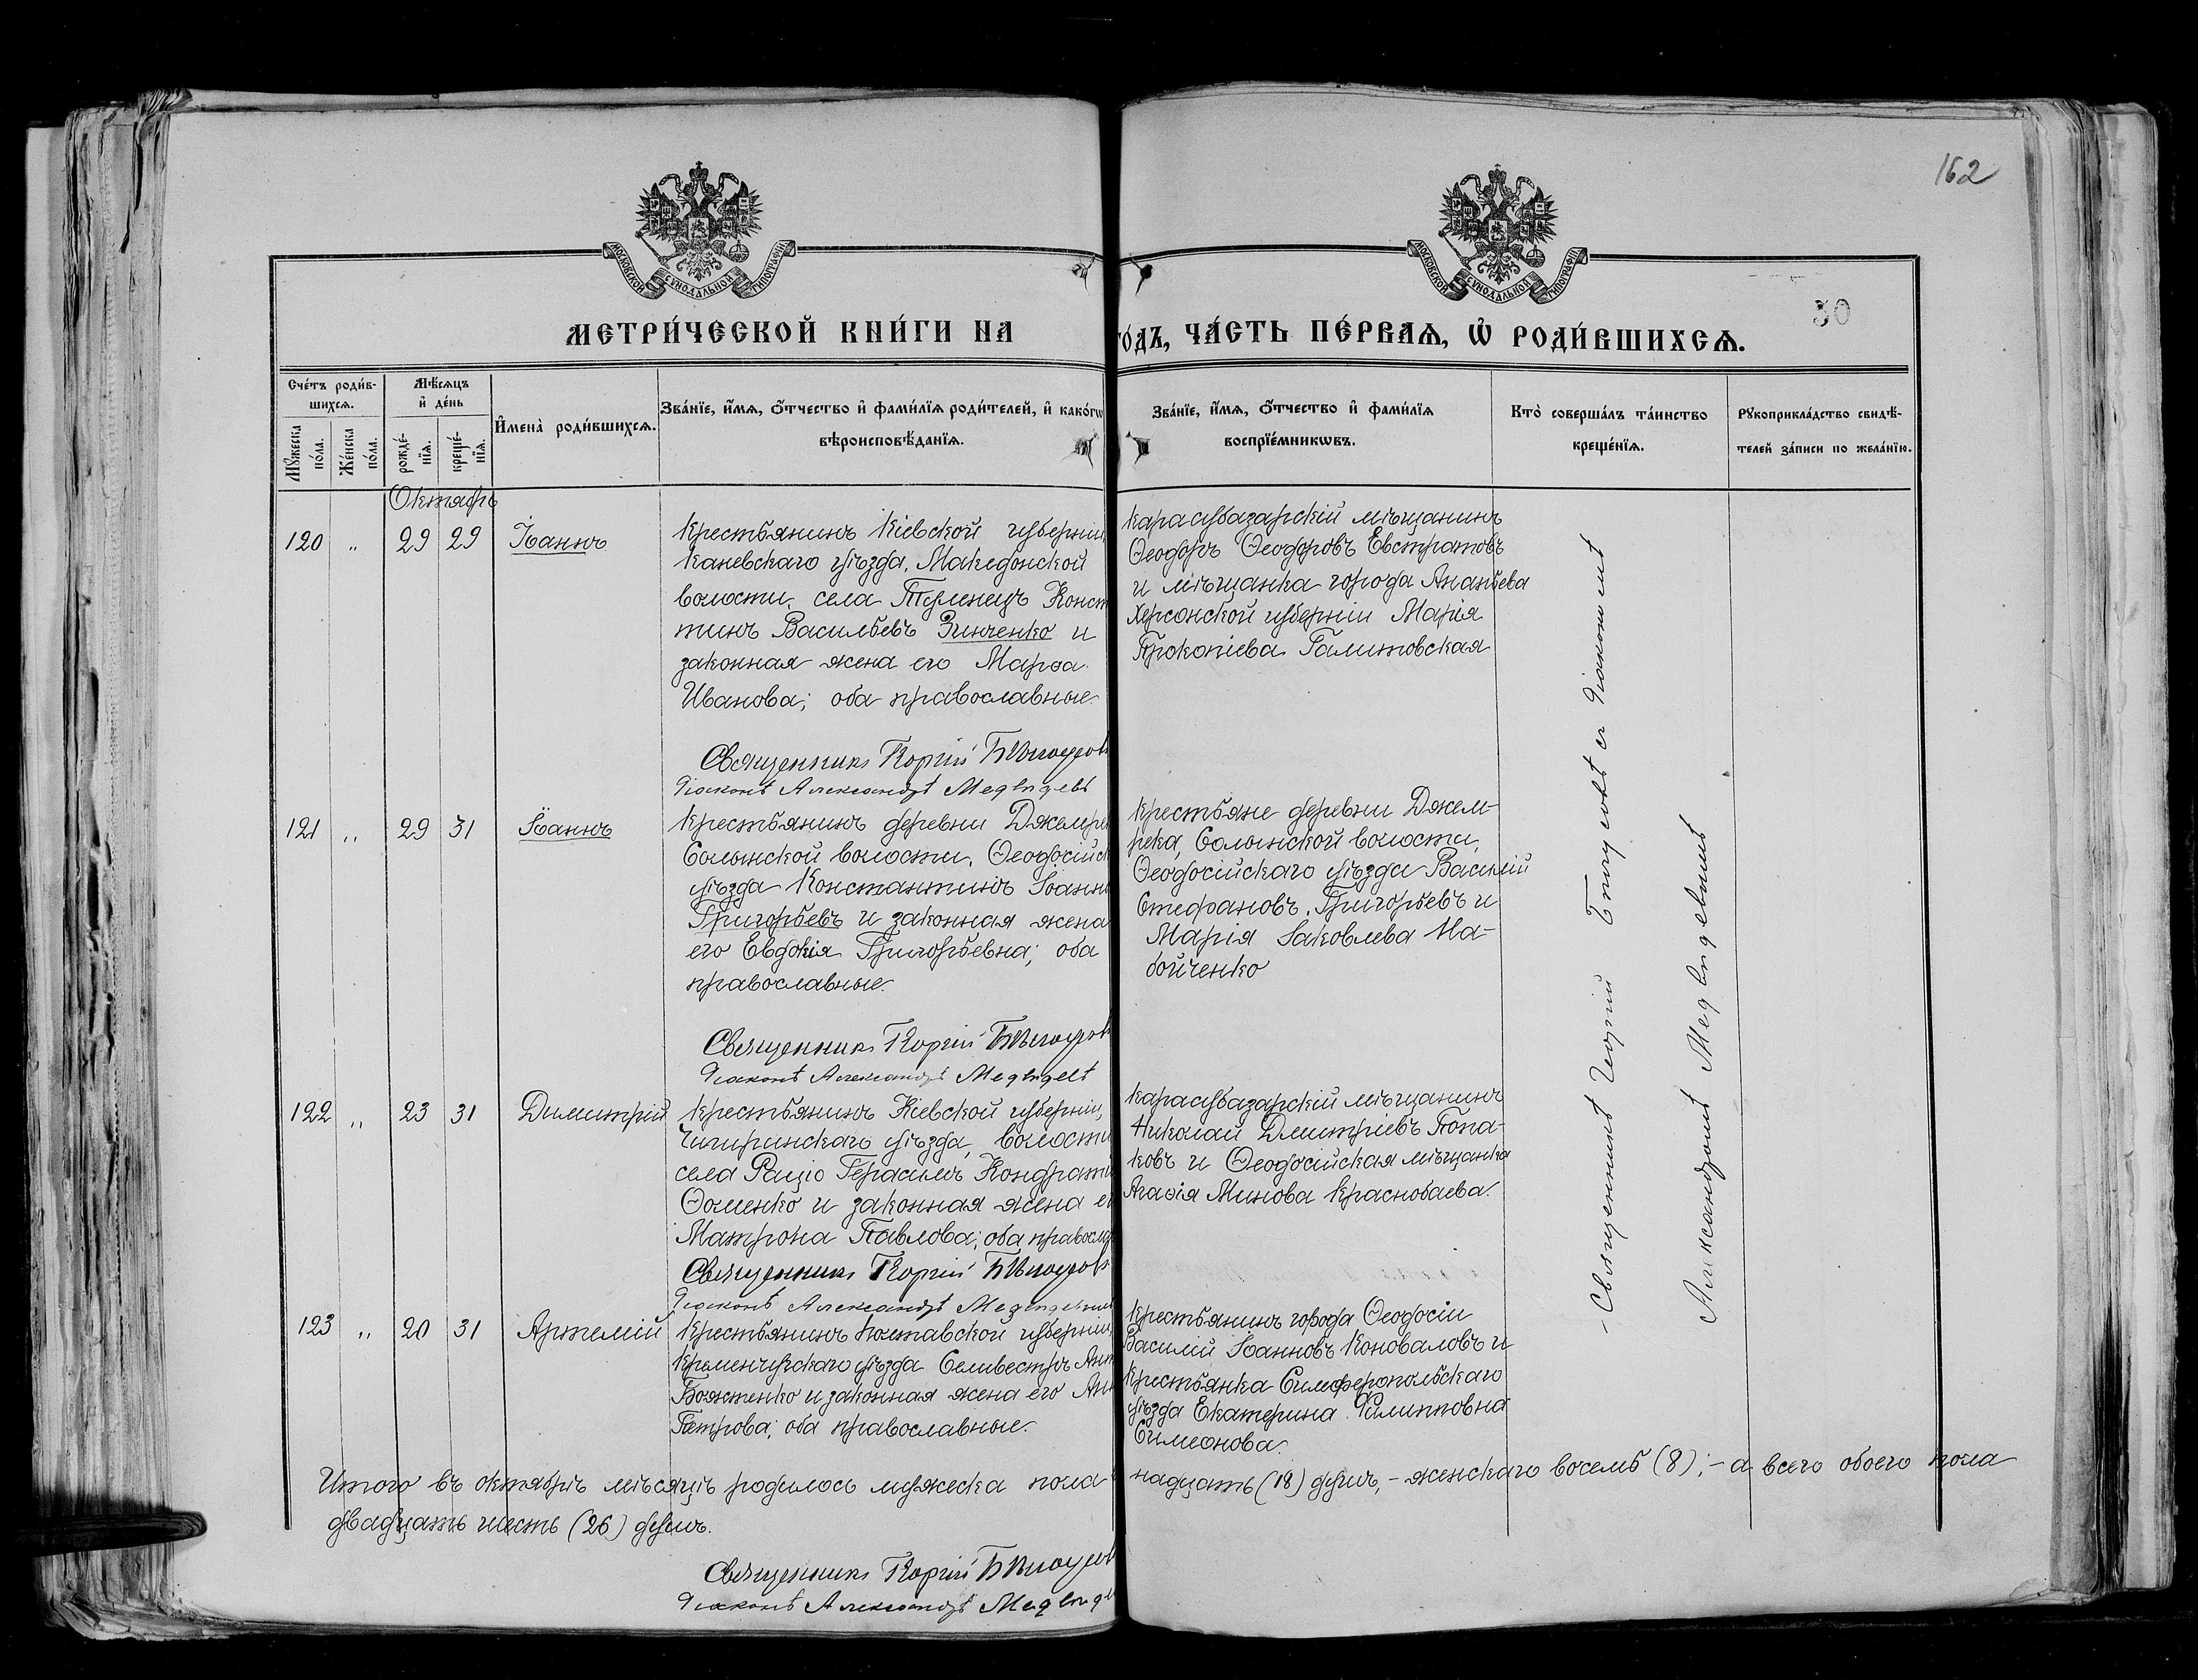 162
МОСКОВСКОЙ СѴНОДАЛЬНОЙ ТИПОГРАФІИ
МОСКОВСКОЙ СѴНОДАЛЬНОЙ ТИПОГРАФІИ
30
МЕТРИ́ЧЕСКОЙ КНИ́ГИ НА
ГО́ДЪ, ЧА́СТЬ ПЕ́РВАѦ, Ѽ РОДИ́ВШИХСѦ.
Сче́тъ роди́в-
шихсѧ.
Мꙋ́жеска по́ла.
Же́нска по́ла.
Мѣ́сѧцъ
и҆ де́нь
рожде́-
нїѧ.
креще́-
нїѧ.
И҆мена̀ роди́вшихсѧ.
Зва́нїе, и҆́мѧ, ѻ҆́тчество и҆ фами́лїѧ роди́телей, и҆ како́гѡ
вѣроисповѣ́данїѧ.
Зва́нїе, и҆́мѧ, ѻ҆́тчество и҆ фами́лїѧ
воспрїе́мникѡвъ.
Кто̀ соверша́лъ та́инство
креще́нїѧ.
Рꙋкоприкла́дство свидѣ́-
телей за́писи по жела́нїю.
Октябрь
120 " 29 29 Іоаннъ
Крестьянинъ Кіевской губерніи
Каневскаго уѣзда, Македонской
волости, села Конст
тинъ Васильевъ Зинченко и
законная жена его Марѳа
Иванова; оба православные.
Священникъ Георгій Бѣлоусовъ
Діаконъ Александръ Медвѣдевъ
Карасубазарскій мѣщанинъ
Ѳеодоръ Ѳеодоровъ Евстратовъ
и мѣщанка города Ананьева
Херсонской губерніи Марія
Прокопіева Галитовская
121 " 29 31 Іоаннъ
Крестьянинъ деревни Джемре
Салынской волости, Ѳеодосійск
уѣзда Константинъ Іоанн
Григорьевъ и законная жена
его Евдокія Григорьевна; оба
православные.
Священникъ Георгій Бѣлоусовъ
Діаконъ Александръ Медвѣдевъ
Крестьяне деревни Джем-
река, Салынской волости,
Ѳеодосійскаго уѣзда Василій
Стефановъ Григорьевъ и
Марія Іаковлева На-
бойченко
122 " 23 31 Димитрій
Крестьянинъ Кіевской губерніи,
Чигиринскаго уѣзда, волости
села Рацѣо Герасимъ Кондрать
Ѳоменко и законная жена е
Матрона Павлова; оба правосла
Священникъ Георгій Бѣлоусовъ
Діаконъ Александръ Медвѣдевъ
Карасубазарскій мѣщанинъ
Николай Дмитріевъ Попа-
ковъ и Ѳеодосійская мѣщанка
Агаѳія Минова Краснобаева.
123 " 20 31 Артемій
Крестьянинъ Полтавской губерніи,
Кременчугскаго уѣзда Селивестръ Ант
Божтенко и законная жена его Ан
Петрова; оба православные.
Крестьянинъ города Ѳеодосіи
Василій Іоанновъ Коноваловъ и
крестьянка Симферопольскаго
уѣзда Екатерина Филипповна
Симеонова.
Священникъ Георгій Бѣлоусовъ съ діакономъ
Александромъ Медвѣдевымъ
Итого въ октябрѣ мѣсяцѣ родилось мужеска пола надцать (18) душъ, - женскаго восемь (8); - а всего обоего пола
двадцать шесть (26) душъ.
Священникъ Георгій Бѣлоусовъ
Діаконъ Александръ Медвѣдев